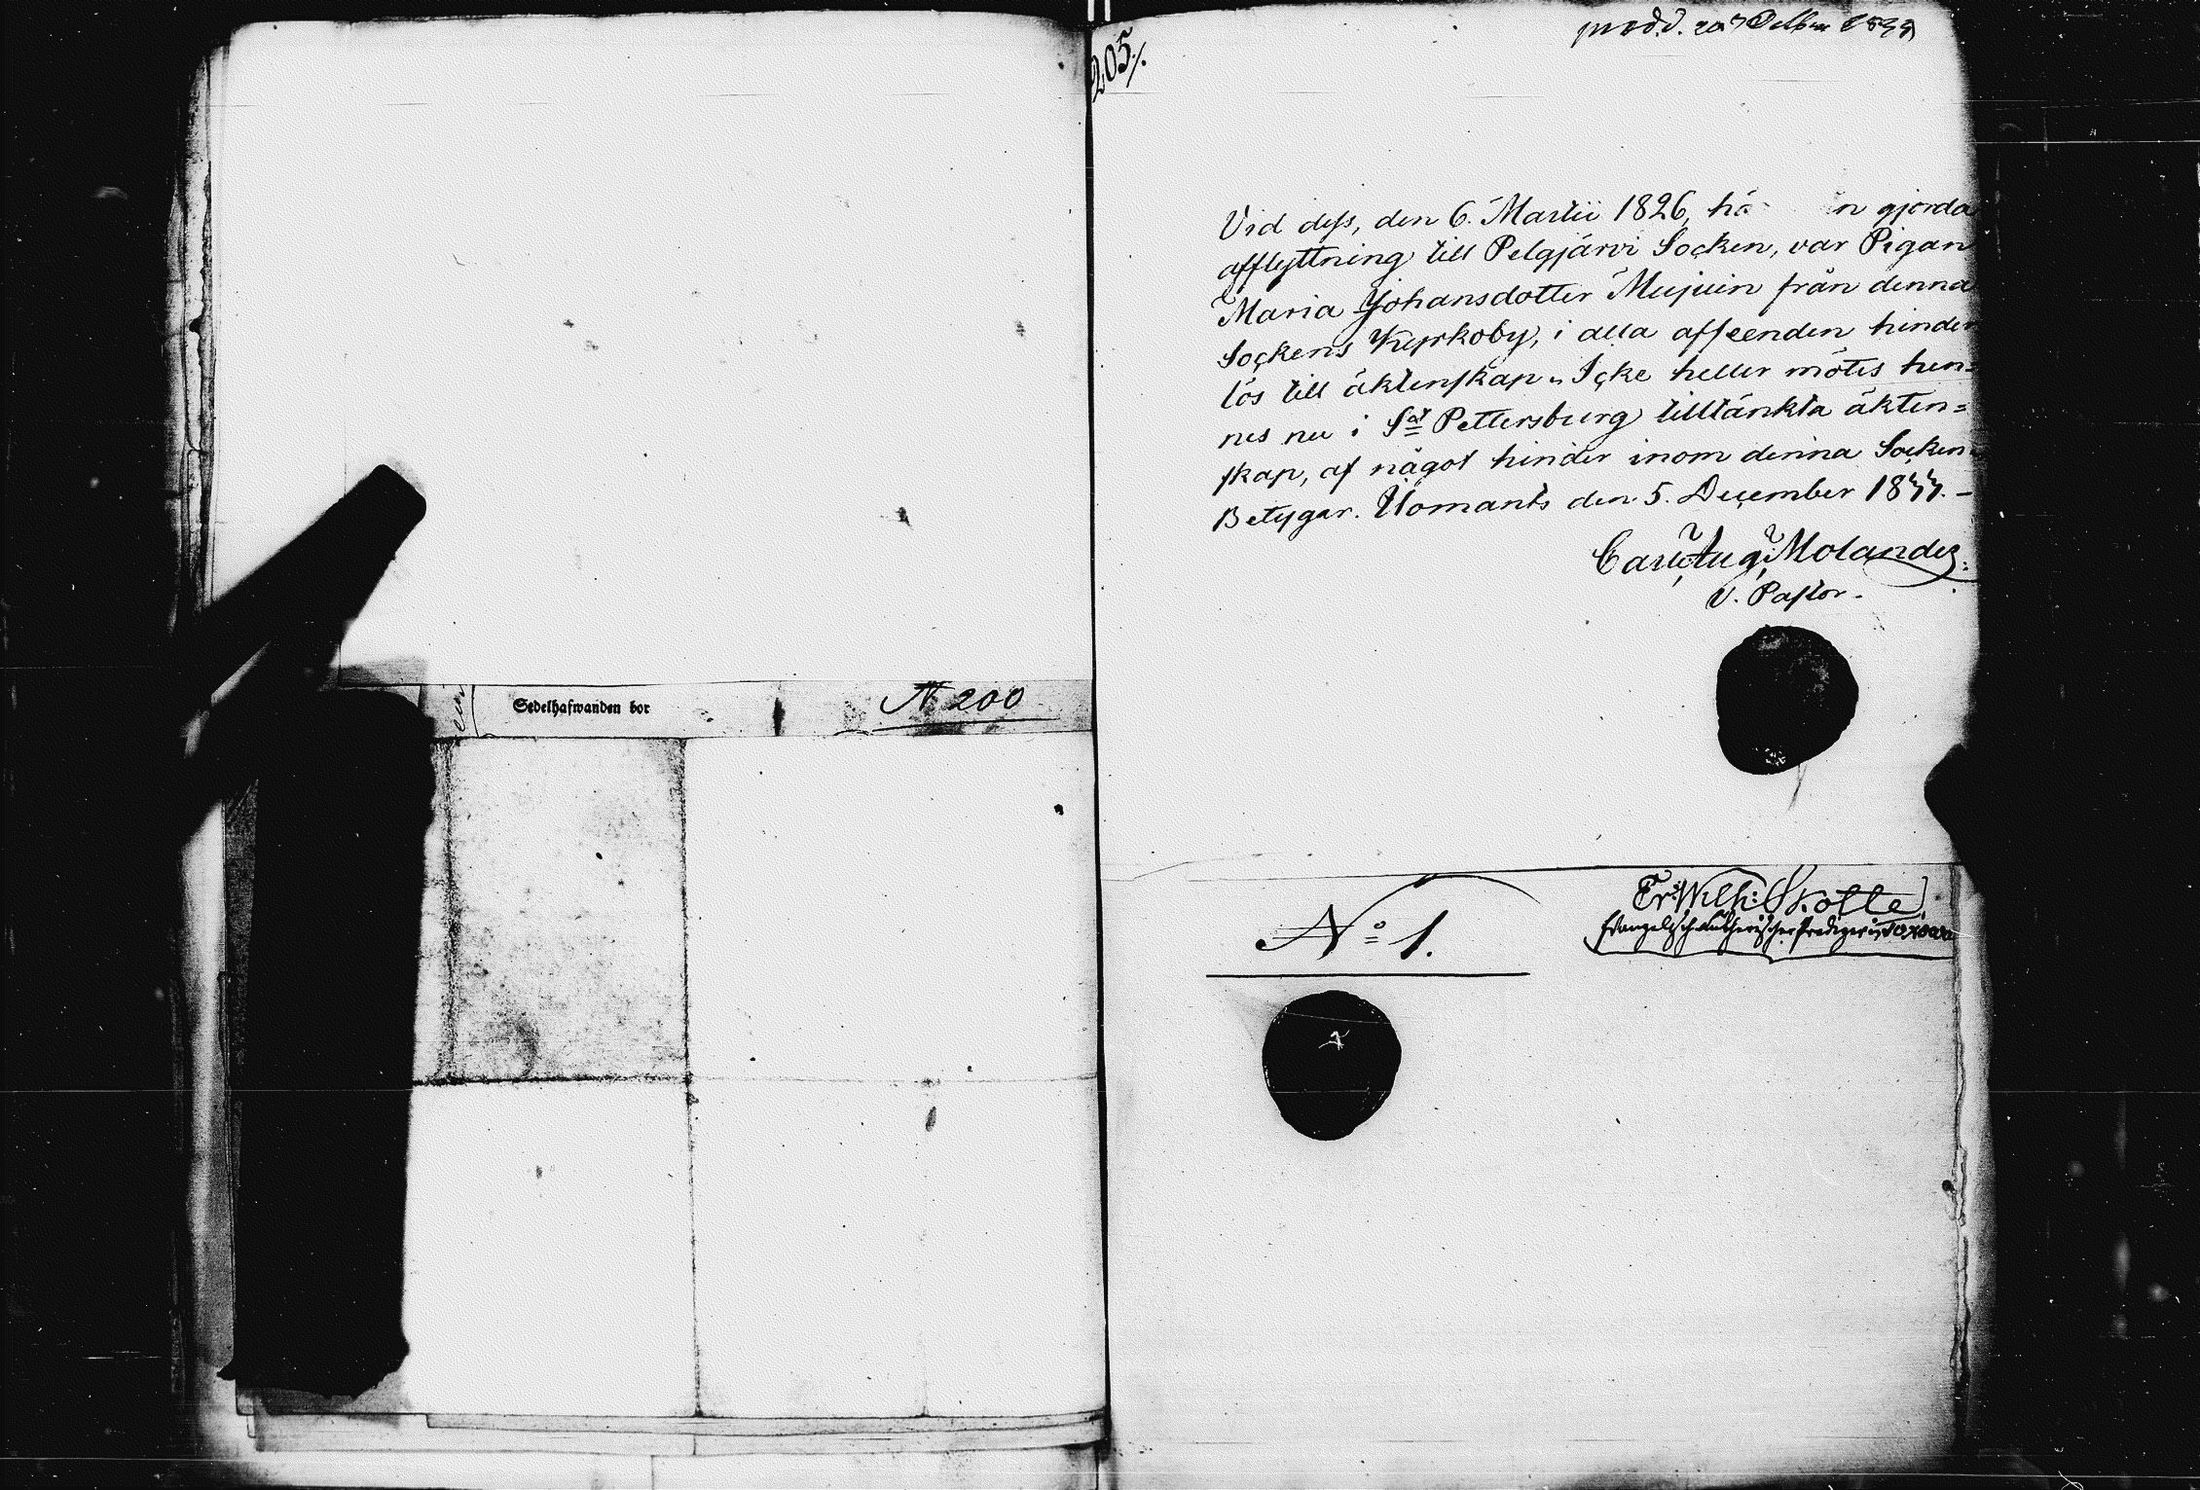 Sedelhafwanden bor
N 200
205/.
prod. d. 20 Decbr 1833
Vid dess, den 6. Martii 1826, hä n gjorda
afflyttning till Pelgjärvi Socken, var Pigan
Maria Johansdotter Mujuin från denna
Sockens Kyrkoby, i alla afseenden hinder
lös till äktenskap. Icke heller mötes hen=
nes nu i S:t Pettersburg tilltänkta äkten=
skap, af något hinder inom denna Socken
Betygar. Ilomants den 5. December 1833. –
Carl Aug: Molander.
V. Pastor.
N:o 1.
Fr: Wilh:
Evangelisch-Lutherischer Prediger in Toxowa